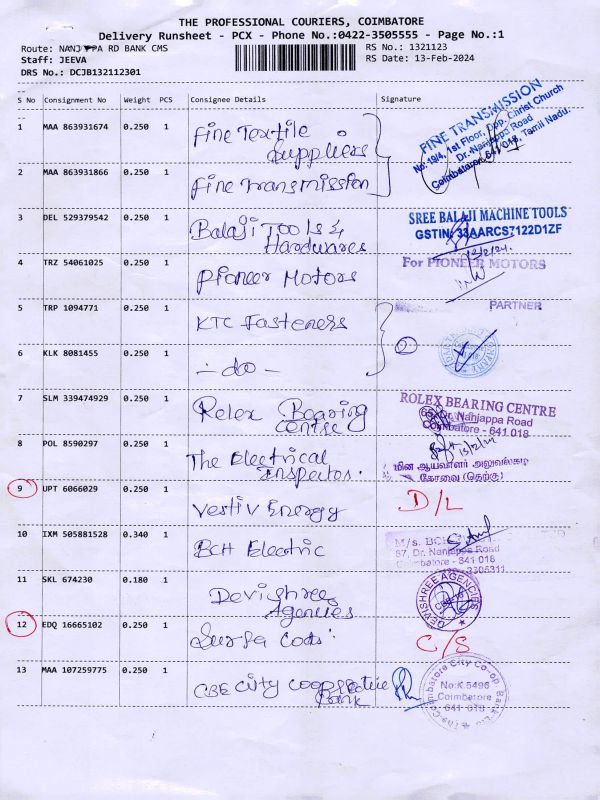 THE PROFESSIONAL COURIERS, COIMBATORE
Delivery Runsheet - PCX - Phone No.:0422-3505555 - Page No.:1
Route: NANJAPPA RD BANK CMS
RS No.: 1321123
Staff: JEEVA
RS Date: 13-Feb-2024
DRS No.: DCJB132112301
S No Consignment No Weight PCS Consignee Details Signature
1 MAA 863931674 0.250 1 Fine Textile Suppliers
FINE TRANSMISSION
No: 19/4, 1st Floor, Opp. Christ Church
Dr. Nanjappa Road
Coimbatore - 641 018, Tamil Nadu.
2 MAA 863931866 0.250 1 Fine Transmission
3 DEL 529379542 0.250 1 Balaji Tools & Hardwares
SREE BALAJI MACHINE TOOLS
GSTIN: 33AARCS7122D1ZF
12/2/24.
4 TRZ 54061025 0.250 1 Pioneer Motors
For PIONEER MOTORS
PARTNER
5 TRP 1094771 0.250 1 KTC Fasteners
6 KLK 8081455 0.250 1 - do - 2
7 SLM 339474929 0.250 1 Rolex Bearing Centre
ROLEX BEARING CENTRE
65, Dr. Nanjappa Road
Coimbatore - 641 018
8 POL 8590297 0.250 1 The Electrical Inspector.
13/2/24
மின் ஆய்வாளர் அலுவலகம்
கோவை (தெற்கு)
9 UPT 6066029 0.250 1 Vestiv Energy D/L
10 IXM 505881528 0.340 1 BCH Electric
M/s. BCH
67, Dr. Nanjappa Road
Coimbatore - 641 018
2305311
11 SKL 674230 0.180 1 Devishree Agencies
DEVISHREE AGENCIES
12 EDQ 16665102 0.250 1 C/S
13 MAA 107259775 0.250 1 CBE City Cooperative Bank
The Coimbatore City Co-op Bank Ltd
No:K.5496
Coimbatore
641 018